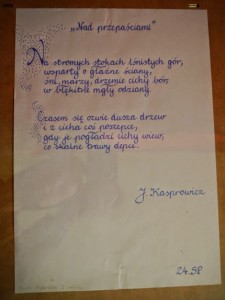 „Nad przepaściami"
Na stromych stokach lśnistych gór,
wsparty o głaźne ściany,
śni, marzy, drzemie cichy bór,
w błękitne mgły odziany.
Czasem się ozwie dusza drzew
i z cicha coś poszepce,
gdy je pogładzi cichy wiew,
co skalne trawy depce.
J. Kasprowicz
24.SP.